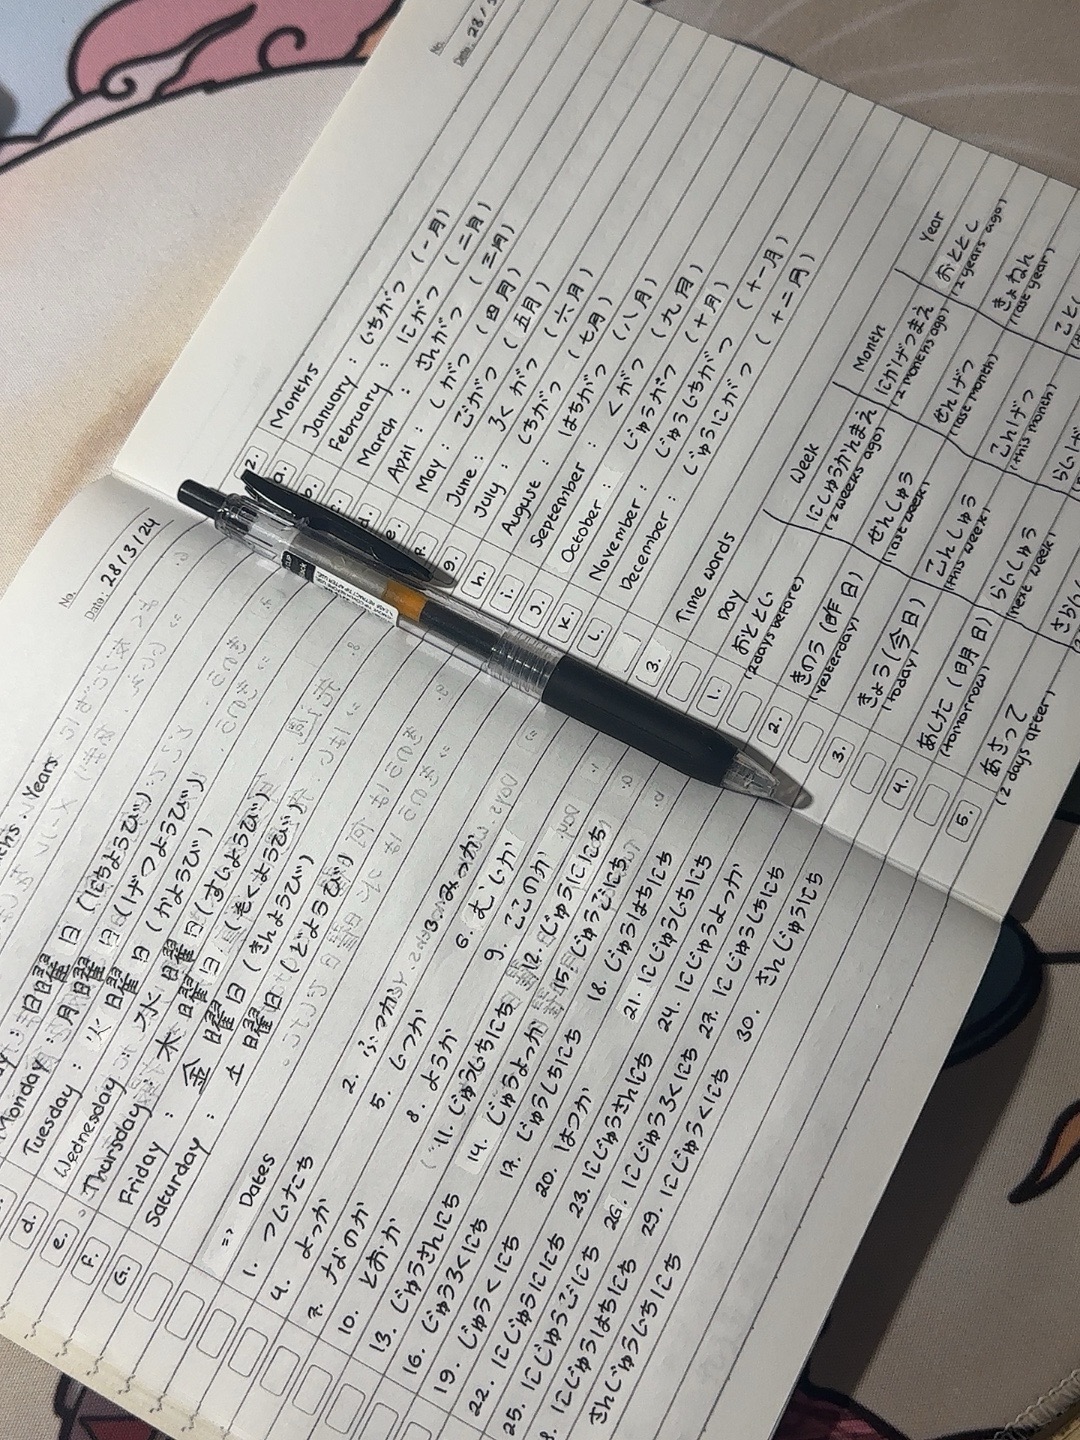 No.
Date: 28/3/24
Years
Monday : 月曜日 (げつようび)
Tuesday : 火曜日 (かようび)
Wednesday : 水曜日 (すいようび)
Thursday : 木曜日 (もくようび)
Friday : 金曜日 (きんようび)
Saturday : 土曜日 (どようび)
d.
e.
f.
G.
=> Dates
1. ついたち 2. ふつか 3. みっか
4. よっか 5. いつか 6. むいか
7. なのか 8. ようか 9. ここのか
10. とおか 11. じゅういちにち 12. じゅうににち
13. じゅうさんにち 14. じゅうよっか 15. じゅうごにち
16. じゅうろくにち 17. じゅうしちにち 18. じゅうはちにち
19. じゅうくにち 20. はつか 21. にじゅういちにち
22. にじゅうににち 23. にじゅうさんにち 24. にじゅうよっか
25. にじゅうごにち 26. にじゅうろくにち 27. にじゅうしちにち
8. にじゅうはちにち 29. にじゅうくにち 30. さんじゅうにち
さんじゅういちにち
No.
Date. 28/3
2. Months
a. January : いちがつ (一月)
b. February : にがつ (二月)
c. March : さんがつ (三月)
d. April : しがつ (四月)
e. May : ごがつ (五月)
June : ろくがつ (六月)
g. July : しちがつ (七月)
h. August : はちがつ (八月)
i. September : くがつ (九月)
J. October : じゅうがつ (十月)
k. November : じゅういちがつ (十一月)
l. December : じゅうにがつ (十二月)
3. Time words
Day Week Month Year
1. おととい にしゅうかんまえ にかげつまえ おととし
(2 days before) (2 weeks ago) (2 months ago) (2 years ago)
2. きのう (昨日) せんしゅう せんげつ きょねん
(yesterday) (last week) (last month) (last year)
3. きょう (今日) こんしゅう こんげつ
(today) (this week) (this month)
4. あした (明日) らいしゅう
(tomorrow) (next week)
5. あさって
(2 days after)